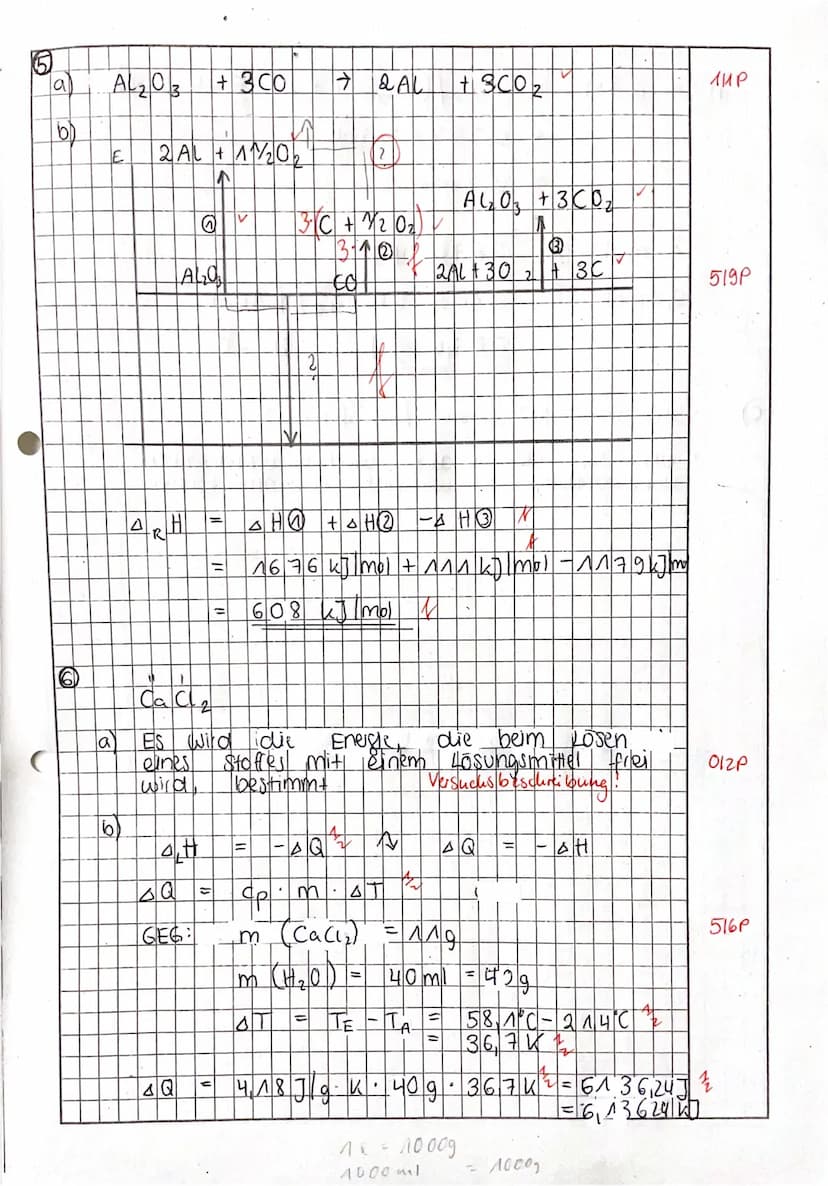 ⑤
a) Al₂O₃ + 3CO → 2Al + 3CO₂ ✓ 1/1P
b)
E 2Al + 1 1/2 O₂ ✓ ?
Al₂O₃ + 3CO₂ ✓
① ✓ 3·(C + 1/2 O₂) ✓
3· ② f ③
Al₂O₃ CO 2Al + 3O₂ + 3C ✓ 5/9P
? f
ΔRH = ΔH① + ΔH② - ΔH③
= 1676 kJ/mol + 111 kJ/mol - 1179 kJ/mol
= 608 kJ/mol
⑥
CaCl₂
a) Es wird die Energie, die beim Lösen
eines Stoffes mit einem Lösungsmittel frei 0/2P
wird, bestimmt Versuchsbeschreibung!
b)
ΔLH = -ΔQ 1/2 ΔQ = -ΔH
ΔQ = cp · m · ΔT 1/2
GEG: m (CaCl₂) = 11g 5/6P
m (H₂O) = 40ml = 40g
ΔT = TE - TA = 58,1°C - 21,4°C 1/2
= 36,7K 1/2
ΔQ = 4,18 J/g·K · 40g · 36,7K 1/2 = 6136,24J 1/2
= 6,13624 kJ
1l = 1000g
1000ml = 1000g